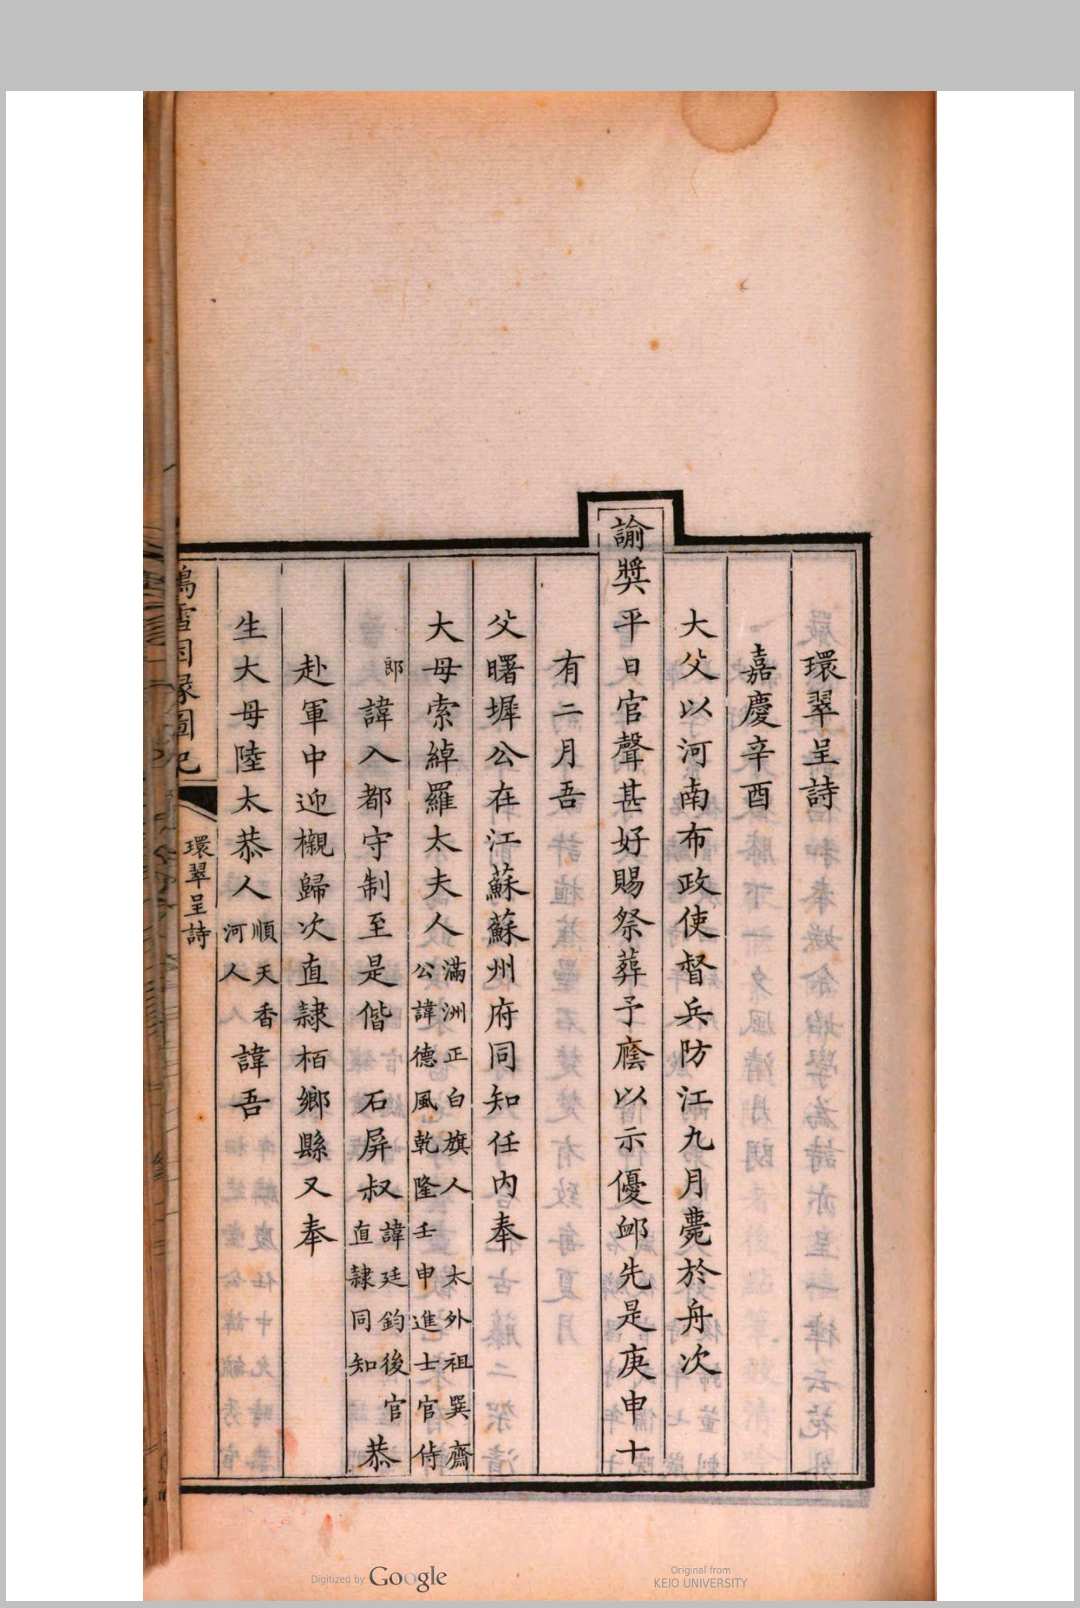 環翠呈詩
嘉慶辛酉
大父以河南布政使督兵防江九月薨於舟次
諭奬平日官聲甚好賜祭葬予廕以示優卹先是庚申十
有二月吾
父曙墀公在江蘇蘇州府同知任內奉
大母索綽羅太夫人滿洲正白旗人太外祖巽齋
公諱德風乾隆壬申進士官侍
郎諱入都守制至是偕石屏叔諱廷鈞後官
直隸同知恭
赴軍中迎櫬歸次直隸栢鄉縣又奉
生大母陸太恭人順天香
河人人諱吾
鴻雪因緣圖記
環翠呈詩
Digitized by Google
Original from
KEIO UNIVERSITY